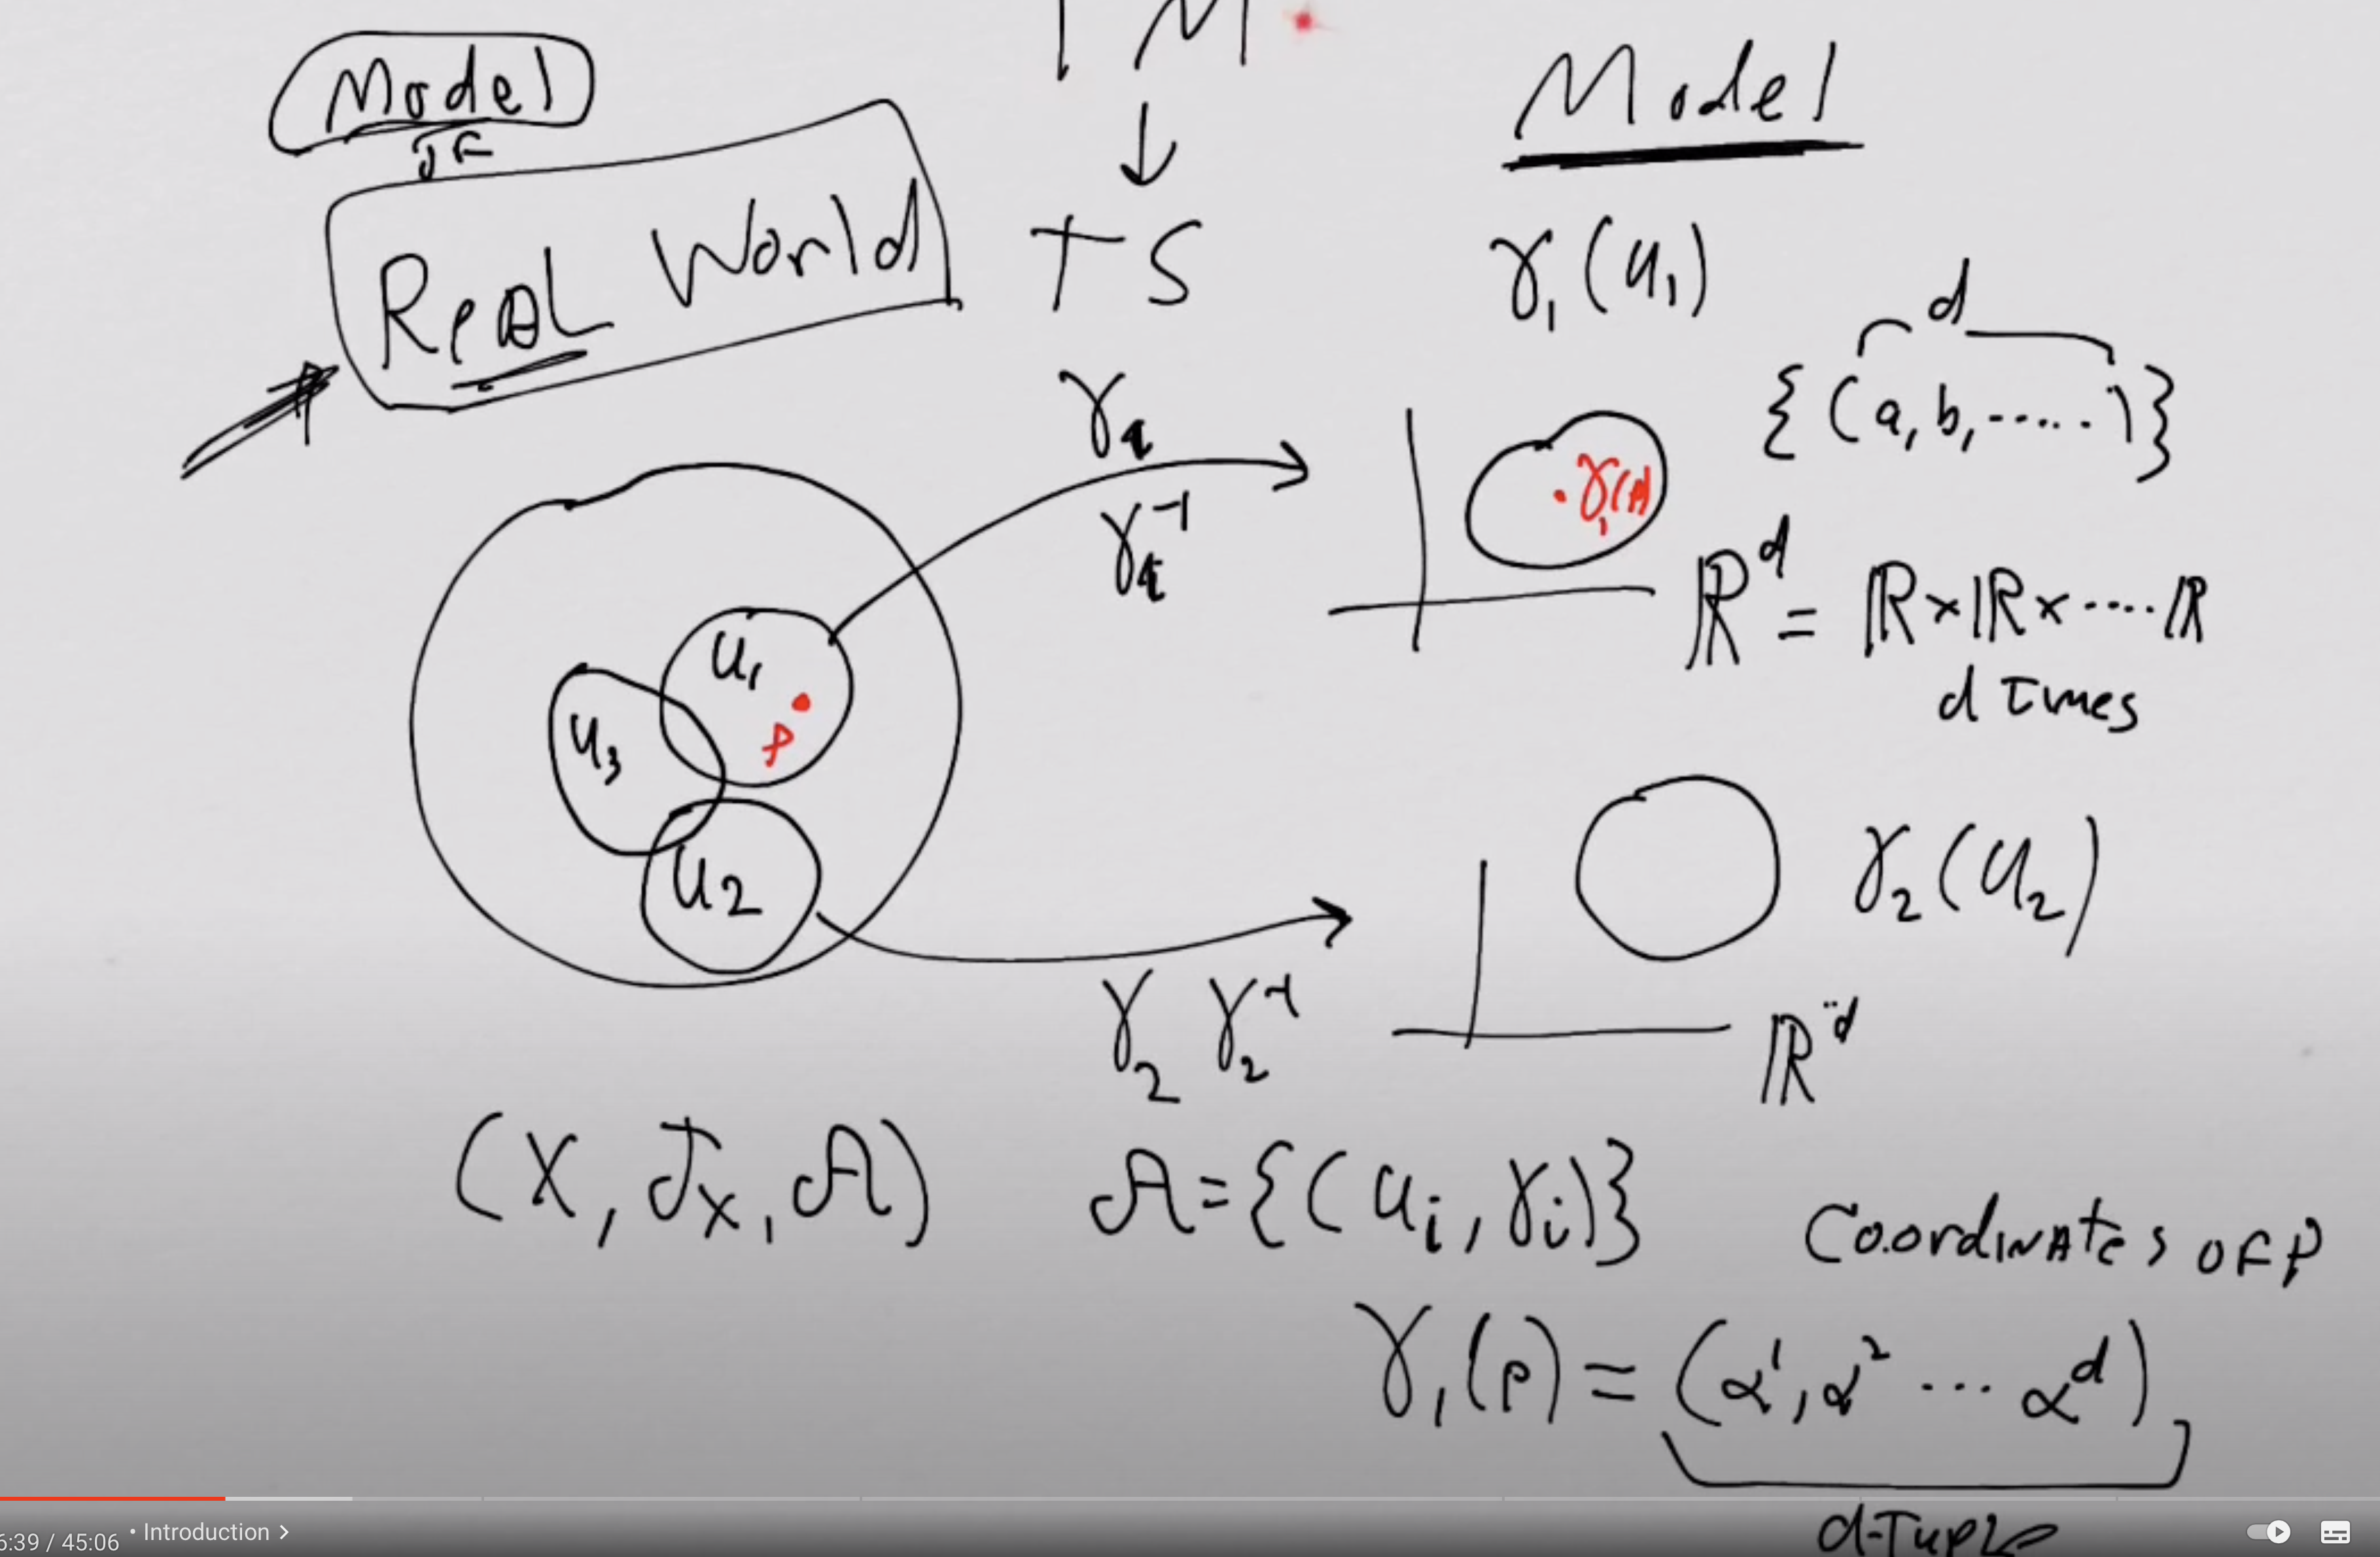 Model
OF
Real World
T M
↓
T S
Model
γ₁(U₁)
d
{(a, b, .....)}
γ₁
γ₁⁻¹
γ₁(p)
ℝᵈ = ℝ×ℝ×....ℝ
d Times
U₁
p
U₃
U₂
γ₂(U₂)
γ₂ γ₂⁻¹
ℝᵈ
(X, 𝒯ₓ, 𝒜) 𝒜={(Uᵢ, γᵢ)}
Coordinates OF P
γ₁(p) = (α¹, α² ... αᵈ)
d-Tuple
6:39 / 45:06 • Introduction >